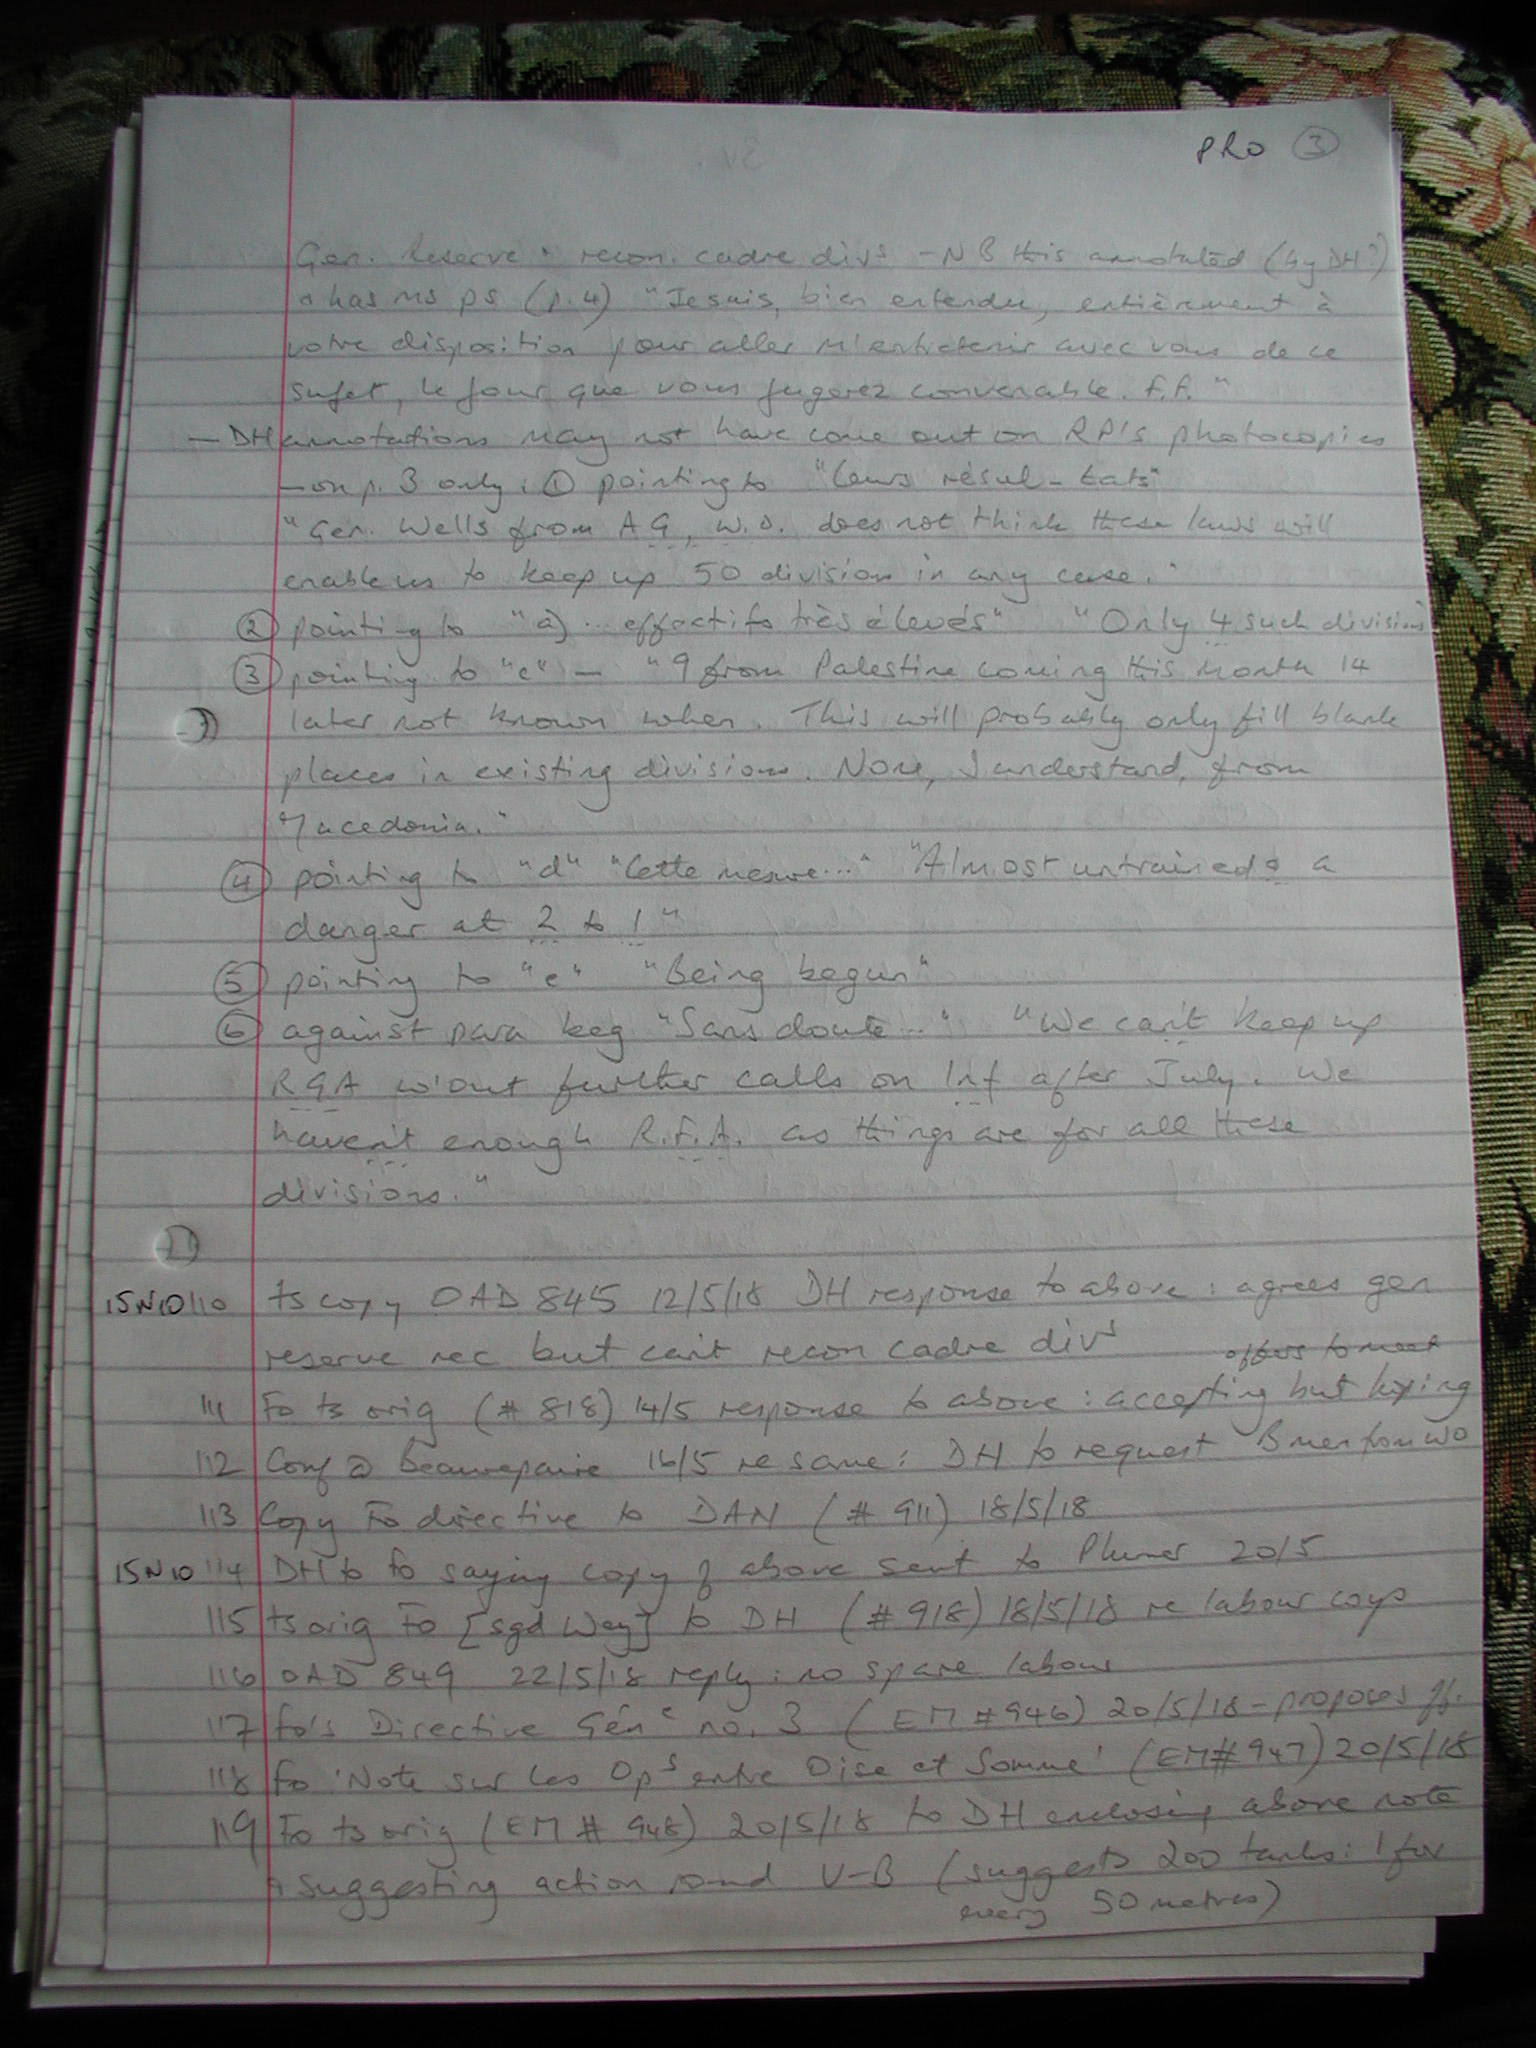 PRO 3
Gen. Reserve & recon. cadre divs - NB this annotated (by DH?)
& has ms ps (p.4) "Je suis, bien entendu, entièrement à
votre disposition pour aller m'entretenir avec vous de ce
sujet, le jour que vous jugerez convenable. F.F."
- DH annotations may not have come out on RP's photocopies
- on p. 3 only: 1 pointing to "leurs résul-tats"
"Gen. Wells from AG, W.O. does not think these laws will
enable us to keep up 50 division in any case."
2 pointing to "a) ... effectifs très élevés" "Only 4 such divisions
3 pointing to "c" - "9 from Palestine coming this month 14
later not known when. This will probably only fill blank
places in existing divisions. None, I understand, from
Macedonia."
4 pointing to "d" "Cette mesure..." "Almost untrained & a
danger at 2 to 1"
5 pointing to "e" "Being begun"
6 against para beg "Sans doute..." "We can't keep up
RGA w'out further calls on Inf after July. We
haven't enough R.F.A. as things are for all these
divisions."
15N10/110 ts copy OAD 845 12/5/18 DH response to above: agrees gen
reserve nec but can't recon cadre divs
offers to meet
111 Fo ts orig (# 818) 14/5 response to above: accepting but hoping
112 Conf @ Beaurepaire 16/5 re same: DH to request B men from WO
113 Copy Fo directive to DAN (# 911) 18/5/18
15N10 114 DH to Fo saying copy of above sent to Plumer 20/5
115 ts orig Fo [sgd Wey] to DH (# 918) 18/5/18 re labour coys
116 OAD 849 22/5/18 reply: no spare labour
117 Fo's Directive Génle no. 3 (EM #946) 20/5/18 - proposes off.
118 Fo 'Note sur les Ops entre Oise et Somme' (EM# 947) 20/5/18
119 Fo ts orig (EM # 948) 20/5/18 to DH enclosing above note
& suggesting action round V-B (suggests 200 tanks: 1 for
every 50 metres)